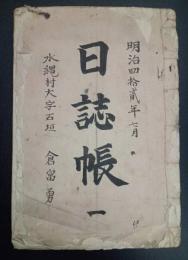 明治四拾貳年七月
日誌帳
一
水縄村大字石垣
倉富勇